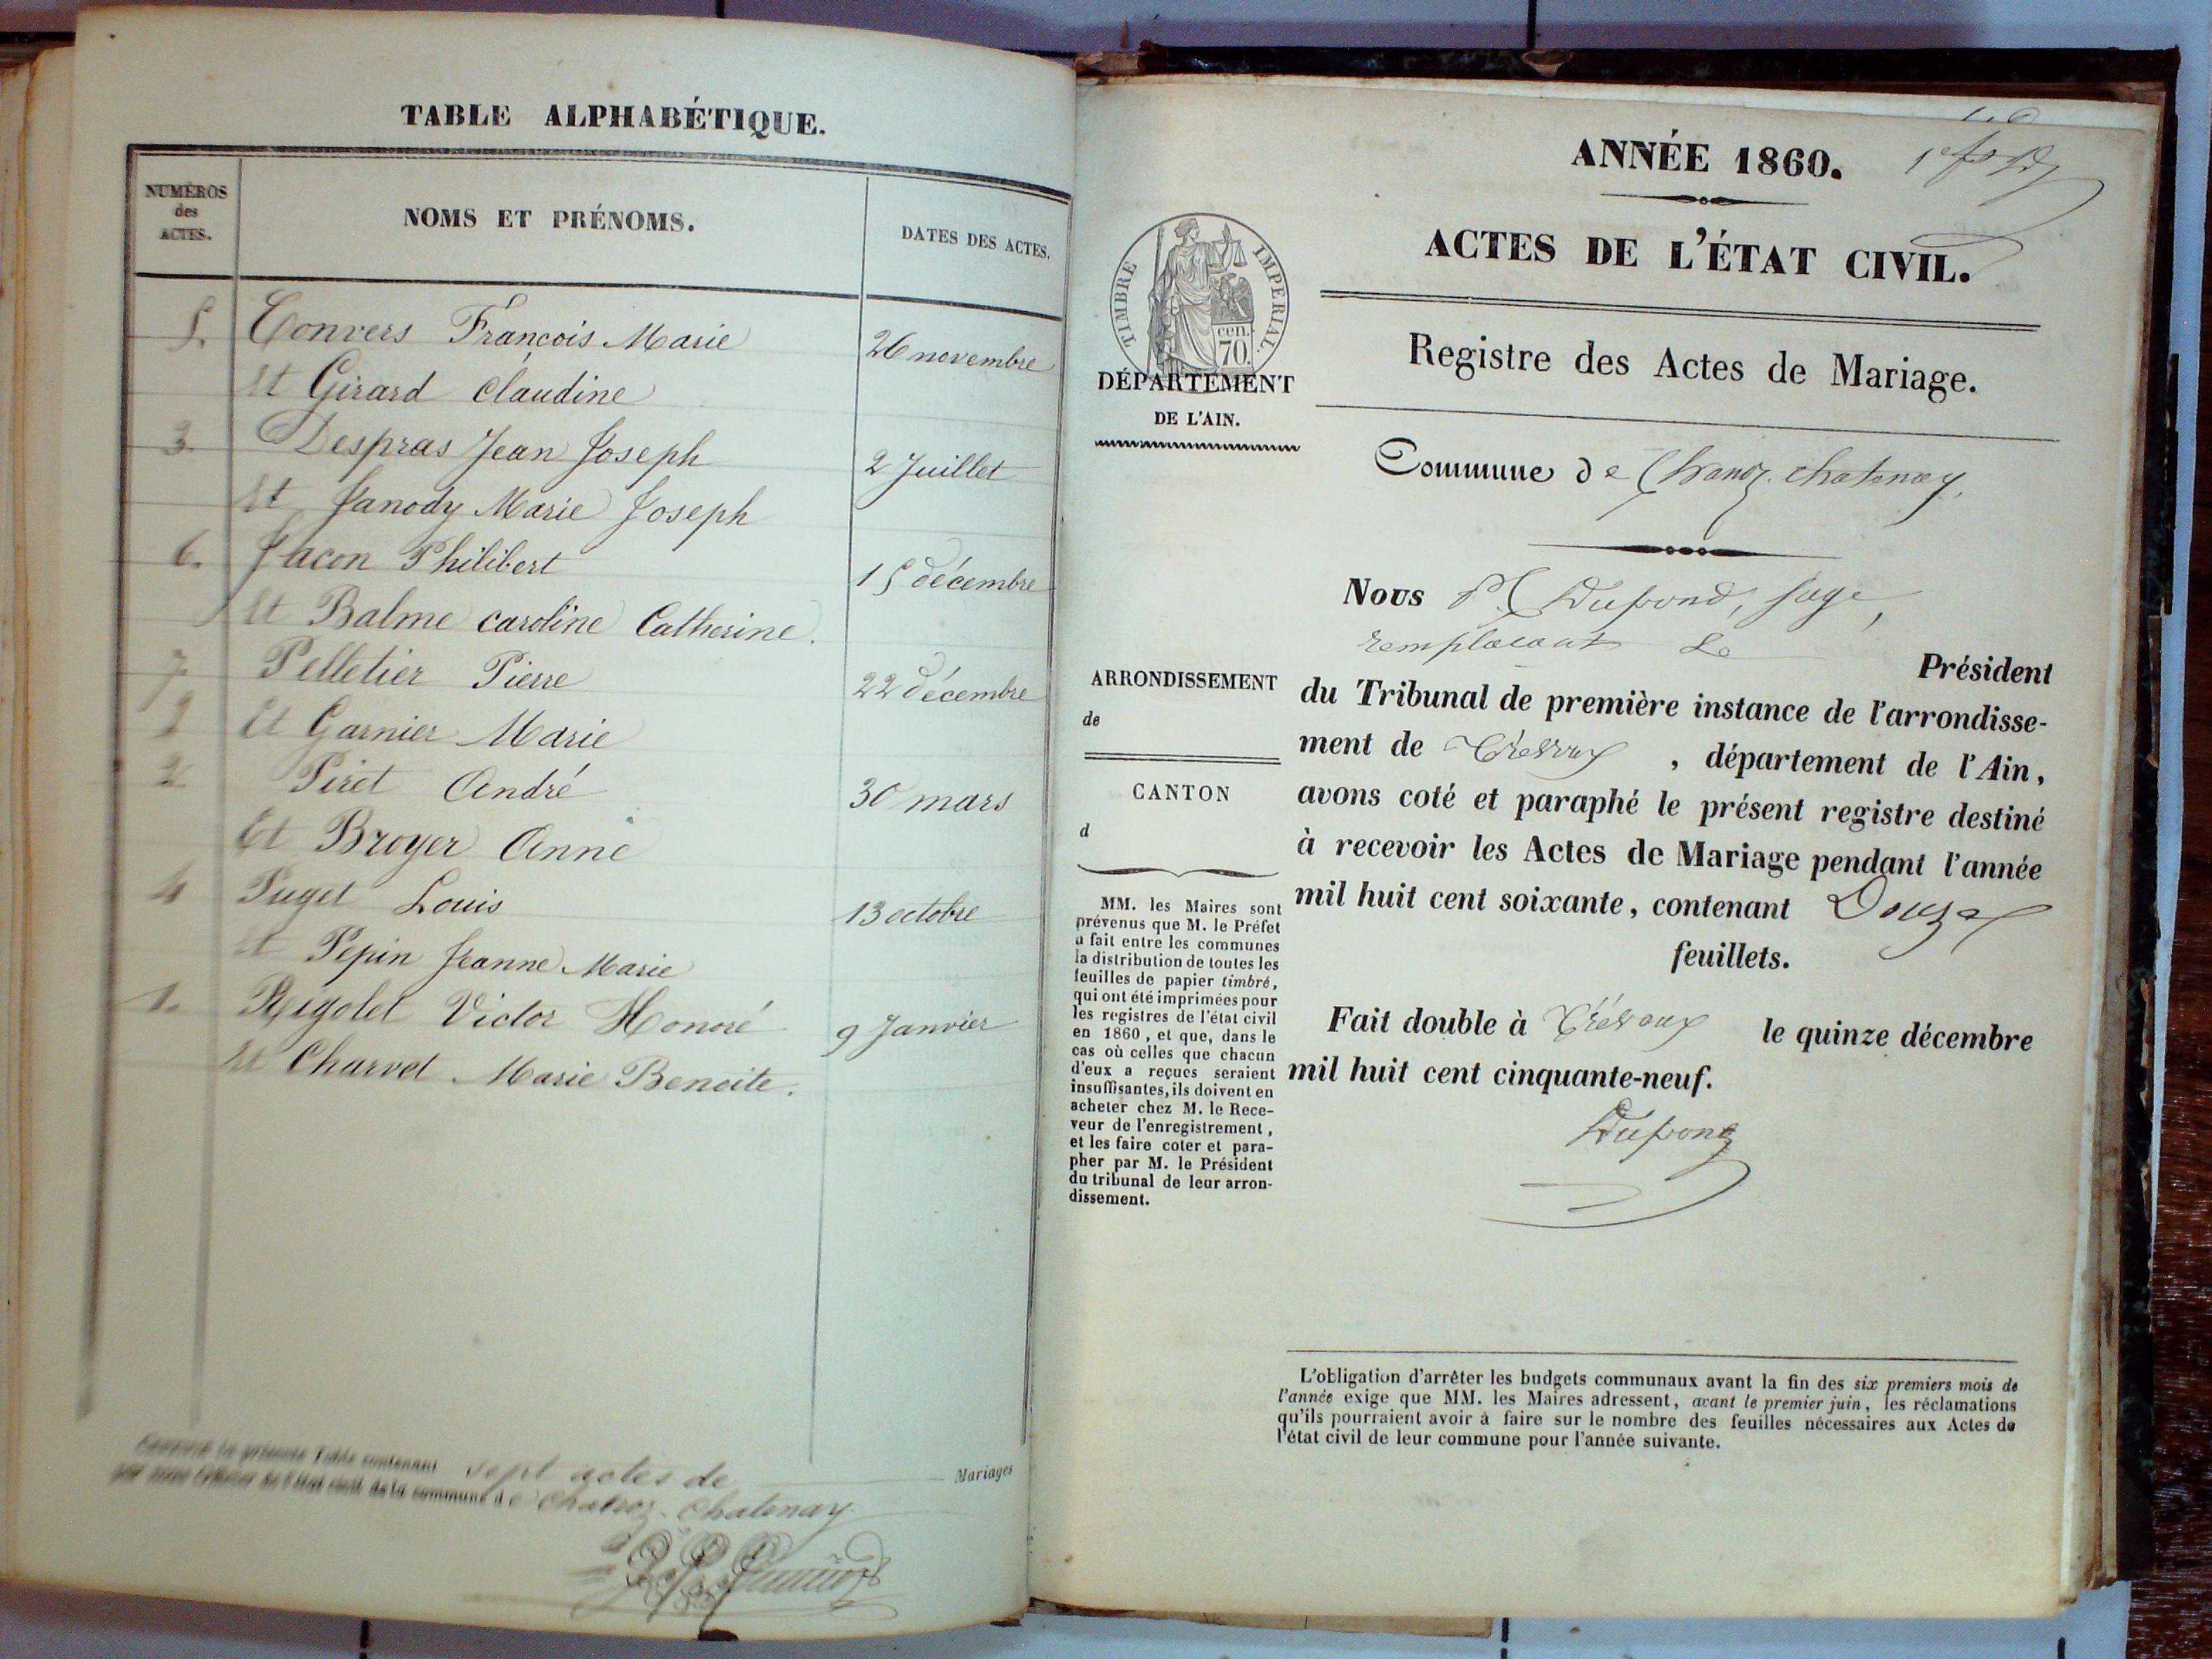 TABLE ALPHABÉTIQUE.
NUMÉROS
des
ACTES.
NOMS ET PRÉNOMS.
DATES DES ACTES.
5. Convers François Marie 26 novembre
et Girard Claudine
3. Despras Jean Joseph 2 Juillet
et Janody Marie Joseph
6. Jacon Philibert 15 décembre
et Balme Caroline Catherine.
7 Pelletier Pierre 22 décembre
Et Garnier Marie
2 Piret André 30 mars
Et Broyer Anne
4 Puget Louis 13 octobre
et Pepin Jeanne Marie
1. Rigolet Victor Honoré 9 Janvier
et Charvet Marie Benoite.
la présente Table contenant sept actes de Mariages
par nous Officier de l'état civil de la commune de Chanoz-Chatenay
ANNÉE 1860.
ACTES DE L'ÉTAT CIVIL.
TIMBRE IMPERIAL
cen.
70.
Registre des Actes de Mariage.
DÉPARTEMENT
DE L'AIN.
Commune de Chanoz-chatenay,
Nous Dupond, juge,
remplacant Le Président
ARRONDISSEMENT
de
CANTON
d
du Tribunal de première instance de l'arrondisse-
ment de Trévoux , département de l'Ain,
avons coté et paraphé le présent registre destiné
à recevoir les Actes de Mariage pendant l'année
mil huit cent soixante, contenant Douze
feuillets.
Fait double à Trévoux le quinze décembre
mil huit cent cinquante-neuf.
Dupond
MM. les Maires sont
prévenus que M. le Préfet
a fait entre les communes
la distribution de toutes les
feuilles de papier timbré,
qui ont été imprimées pour
les registres de l'état civil
en 1860, et que, dans le
cas où celles que chacun
d'eux a reçues seraient
insuffisantes, ils doivent en
acheter chez M. le Rece-
veur de l'enregistrement,
et les faire coter et para-
pher par M. le Président
du tribunal de leur arron-
dissement.
L'obligation d'arrêter les budgets communaux avant la fin des six premiers mois de
l'année exige que MM. les Maires adressent, avant le premier juin, les réclamations
qu'ils pourraient avoir à faire sur le nombre des feuilles nécessaires aux Actes de
l'état civil de leur commune pour l'année suivante.